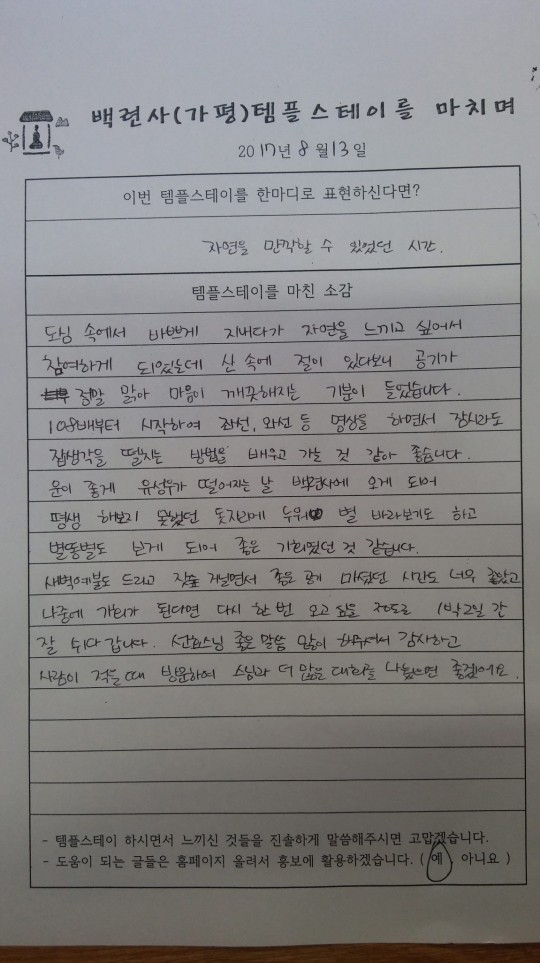 백련사(가평)템플스테이를 마치며
2017년 8월13일
이번 템플스테이를 한마디로 표현하신다면?
자연을 만끽할 수 있었던 시간.
템플스테이를 마친 소감
도심 속에서 바쁘게 지내다가 자연을 느끼고 싶어서
참여하게 되었는데 산 속에 절이 있다보니 공기가
정말 맑아 마음이 깨끗해지는 기분이 들었습니다.
108배부터 시작하여 좌선, 와선 등 명상을 하면서 잠시라도
잡생각을 떨치는 방법을 배우고 가는 것 같아 좋습니다.
운이 좋게 유성우가 떨어지는 날 백련사에 오게 되어
평생 해보지 못했던 돗자리에 누워 별 바라보기도 하고
별똥별도 보게 되어 좋은 기회였던 것 같습니다.
새벽예불도 드리고 잣숲 거닐면서 좋은 공기 마셨던 시간도 너무 좋았고
나중에 기회가 된다면 다시 한 번 오고 싶을 정도로 1박2일 간
잘 쉬다 갑니다. 스님 좋은 말씀 많이 해주셔서 감사하고
사람이 적을 때 방문하여 스님과 더 많은 대화를 나눴으면 좋겠어요.
- 템플스테이 하시면서 느끼신 것들을 진솔하게 말씀해주시면 고맙겠습니다.
- 도움이 되는 글들은 홈페이지 올려서 홍보에 활용하겠습니다. ( 예 아니요 )